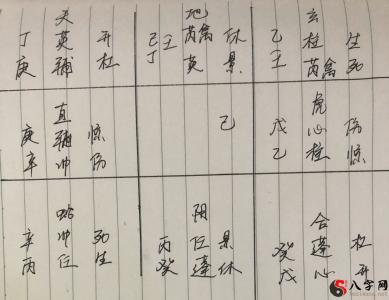 丁 天英 开
庚 辅 杜
己壬 地芮禽 休
丁 英 景
乙 玄柱 生
壬 芮禽 死
庚 直辅 惊
辛 冲 伤
己
戊 虎心 伤
乙 柱 惊
辛 蛇冲 死
丙 任 生
丙 阴任 景
癸 蓬 休
癸 合蓬 杜
戊 心 开
八字网